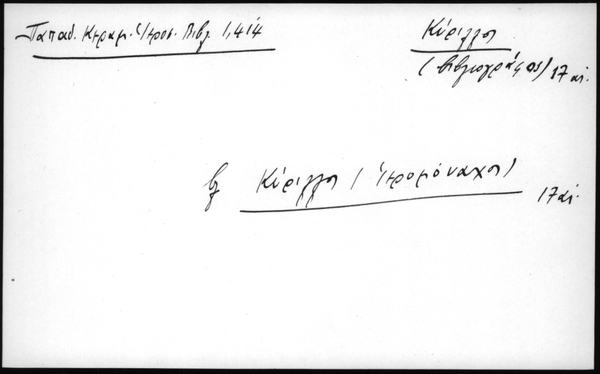 Παπαδ. Κεραμ. Ἱεροσ. Βιβλ 1,414
Κύριλλος
(βιβλιογράφος) 17 αἰ.
βλ Κύριλλος (Ἱερομόναχος)
17 αἰ.